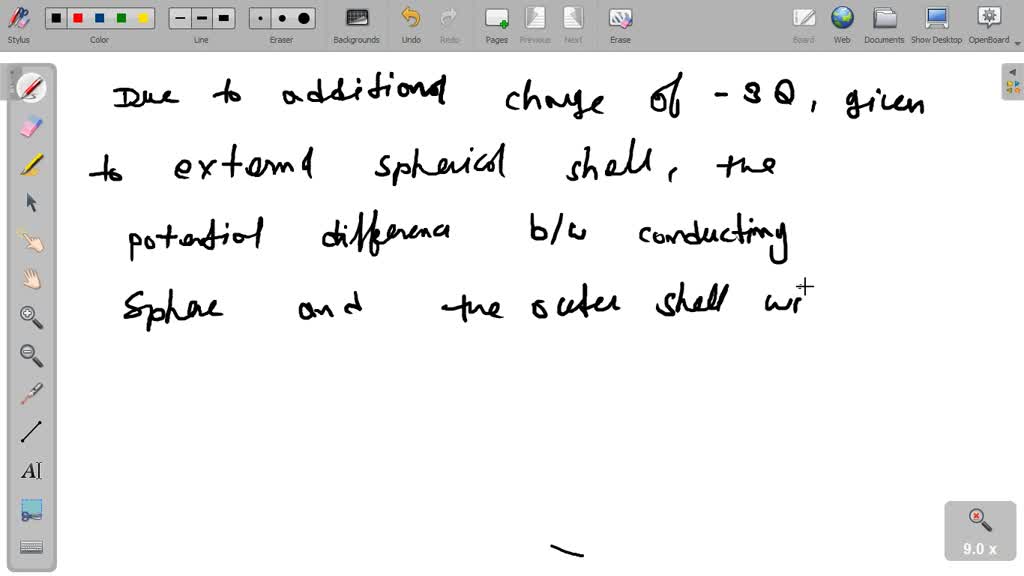 Stylus Color Line Eraser Backgrounds Undo Redo Pages Previous Next Erase Board Web Documents Show Desktop OpenBoard
Due to additional charge of - 3 Q, given
to external spherical shell, the
potential difference b/w conducting
Sphere and the outer shell wi
AI
9.0 x